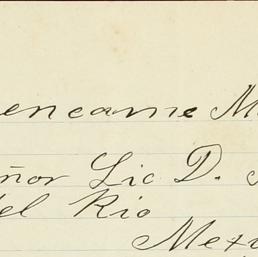 encame M
ñor Lic D.
del Rio
Mexi